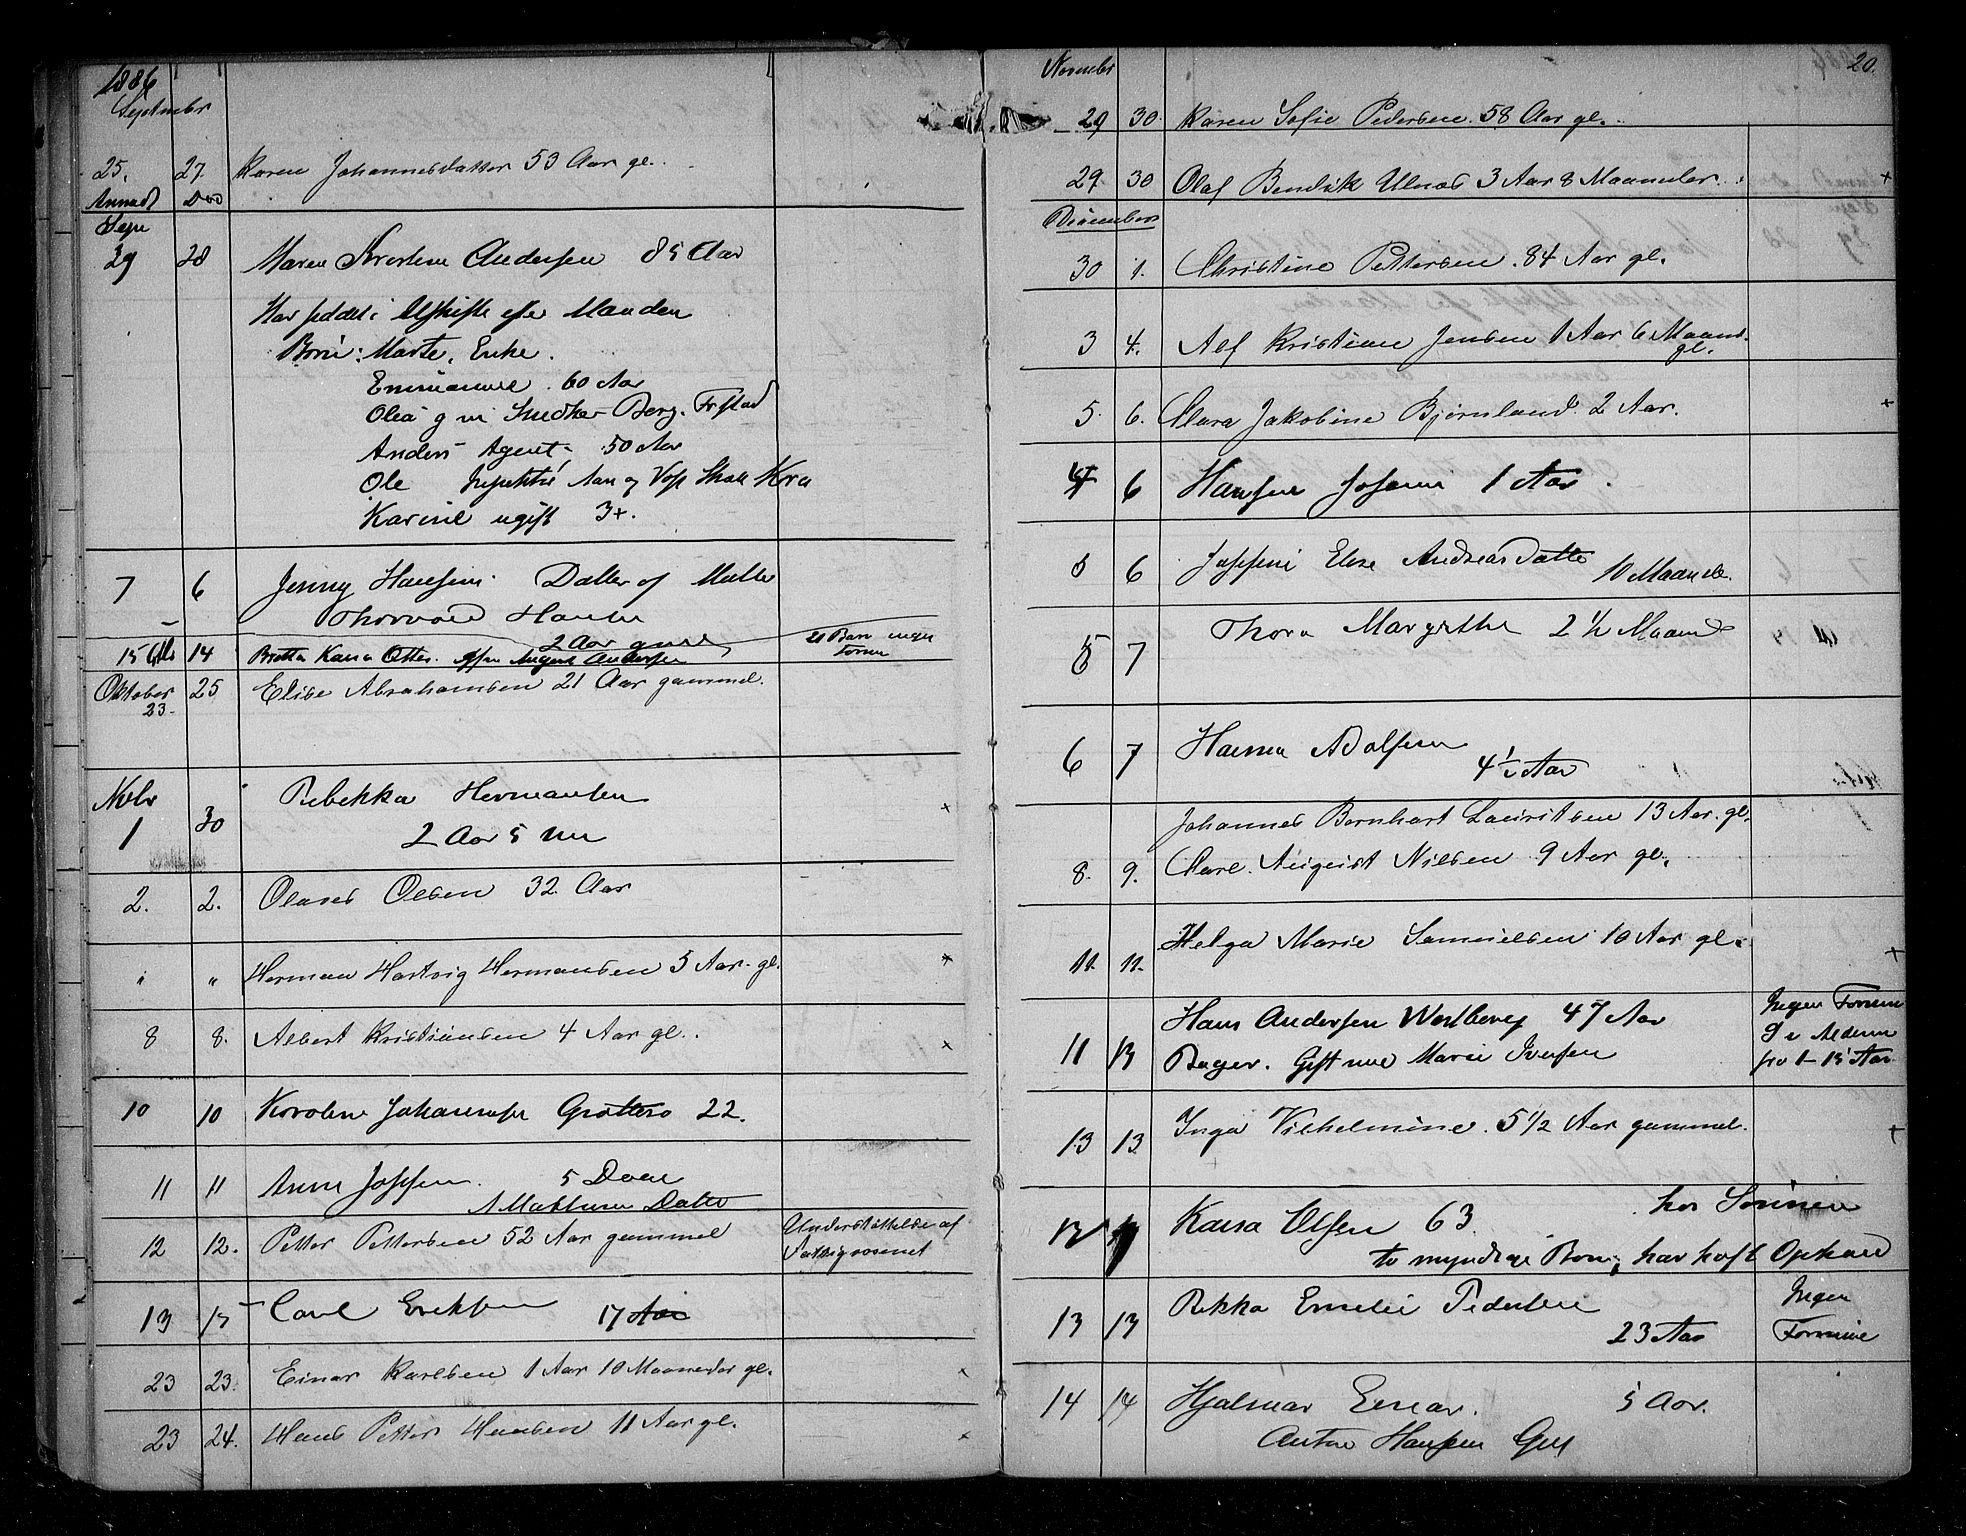 1886
September
25. 27. Karen Johannesdatter 53 Aar gl.
Anmeldt Død
Sepe
29 28 Maren Kirstine Andersen 85 Aar
Har siddet i Uskifte efter Manden
Børn: Marte, Enke.
Emmanuel 60 Aar
Olea g m Snedker Berg. Frstad
Anders Agent 50 Aar
Ole
Karine ugift 3+.
7 6 Jenny Hansine Datter af Matke
Thorvald Hansen
2 Aar gml
15 Okt 14 Britta Karia Otter. Augent Andersen 21 Barn ingen Formue
Oktober 25 Elise Abrahamsen 21 Aar gammel.
23.
Novbr
1 30 Rebekka Hermansen
2 Aar 5 Mn +
2. 2. Olaves Olsen 32 Aar
" " Herman Hartvig Hermansen 5 Aar gl. +
8 8. Albert Kristiansen 4 Aar gl. +
10 10 Karoline Johannesen Grøttero 22.
11 11 Anne Josefsen. 5 Dage
A Mathisen Datter
12 12. Petter Pettersen 52 Aar gammel Understøttelse af
Fattigvæsenet
13 15 Carl Eriksen 17 Aar
23 23. Einar Karlsen 1 Aar 10 Maaneder gl. +
23 24. Hans Petter Hansen 11 Aar gl. +
November 20.
29 30 Karen Sofie Pedersen 58 Aar gl.
29. 30 Olaf Bendik Ulnæs 3 Aar 8 Maaneder. +
December
30 1. Christine Pettersen. 84 Aar gl.
3 4. Alf Kristian Jensen 1 Aar 6 Maand.
gl.
5. 6. Clara Jakobine Bjørnland 2 Aar. +
4 6 Hansine Josefine 1 Aar.
5 6 Josefine Elise Andreas Datter 10 Maaneder.
5 7 Thora Margrethe 2 1/2 Maaned
6 7 Hanna Adolfsen
4 1/2 Aar
Johannes Bernhart Lauritsen 13 Aar. gl.
8. 9. Carl August Nilsen 9 Aar gl.
11. 11. Helga Marie Samuelsen 10 Aar gl. +
Hans Andersen Westberg 47 Aar Ingen Formue
11 13 Bager. Gift med Marie Iversen 9 i Alderen
fra 1-15 Aar
13 13 Inga Vilhelmine. 5 1/2 Aar gammel. +
12 Kaisa Olsen 63. hos Sønnen
to myndige Børn, har haft Ophold
13 13 Rikka Emelie Pedersen Ingen
23 Aar Formue
14 14 Hjalmar Einar. 5 Aar.
Anton Hansen Gul